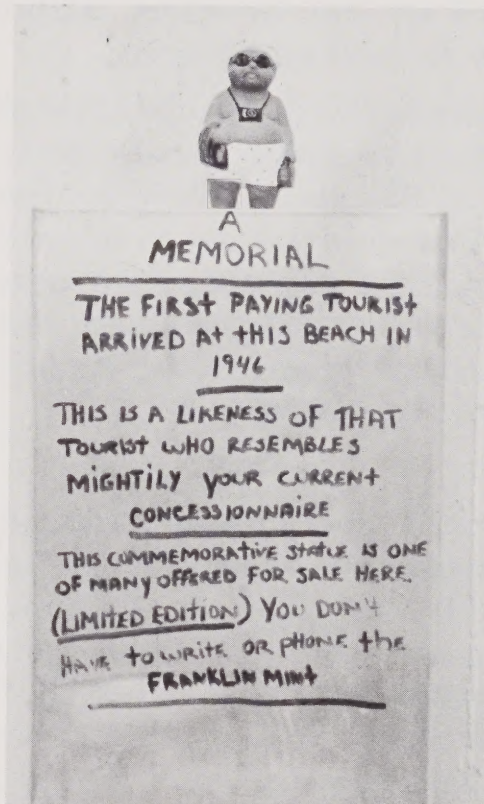 A
MEMORIAL
THE FIRST PAYING TOURIST
ARRIVED AT THIS BEACH IN
1946
THIS IS A LIKENESS OF THAT
TOURIST WHO RESEMBLES
MIGHTILY YOUR CURRENT
CONCESSIONNAIRE
THIS COMMEMORATIVE STATUE IS ONE
OF MANY OFFERED FOR SALE HERE.
(LIMITED EDITION) YOU DON'T
HAVE TO WRITE OR PHONE THE
FRANKLIN MINT